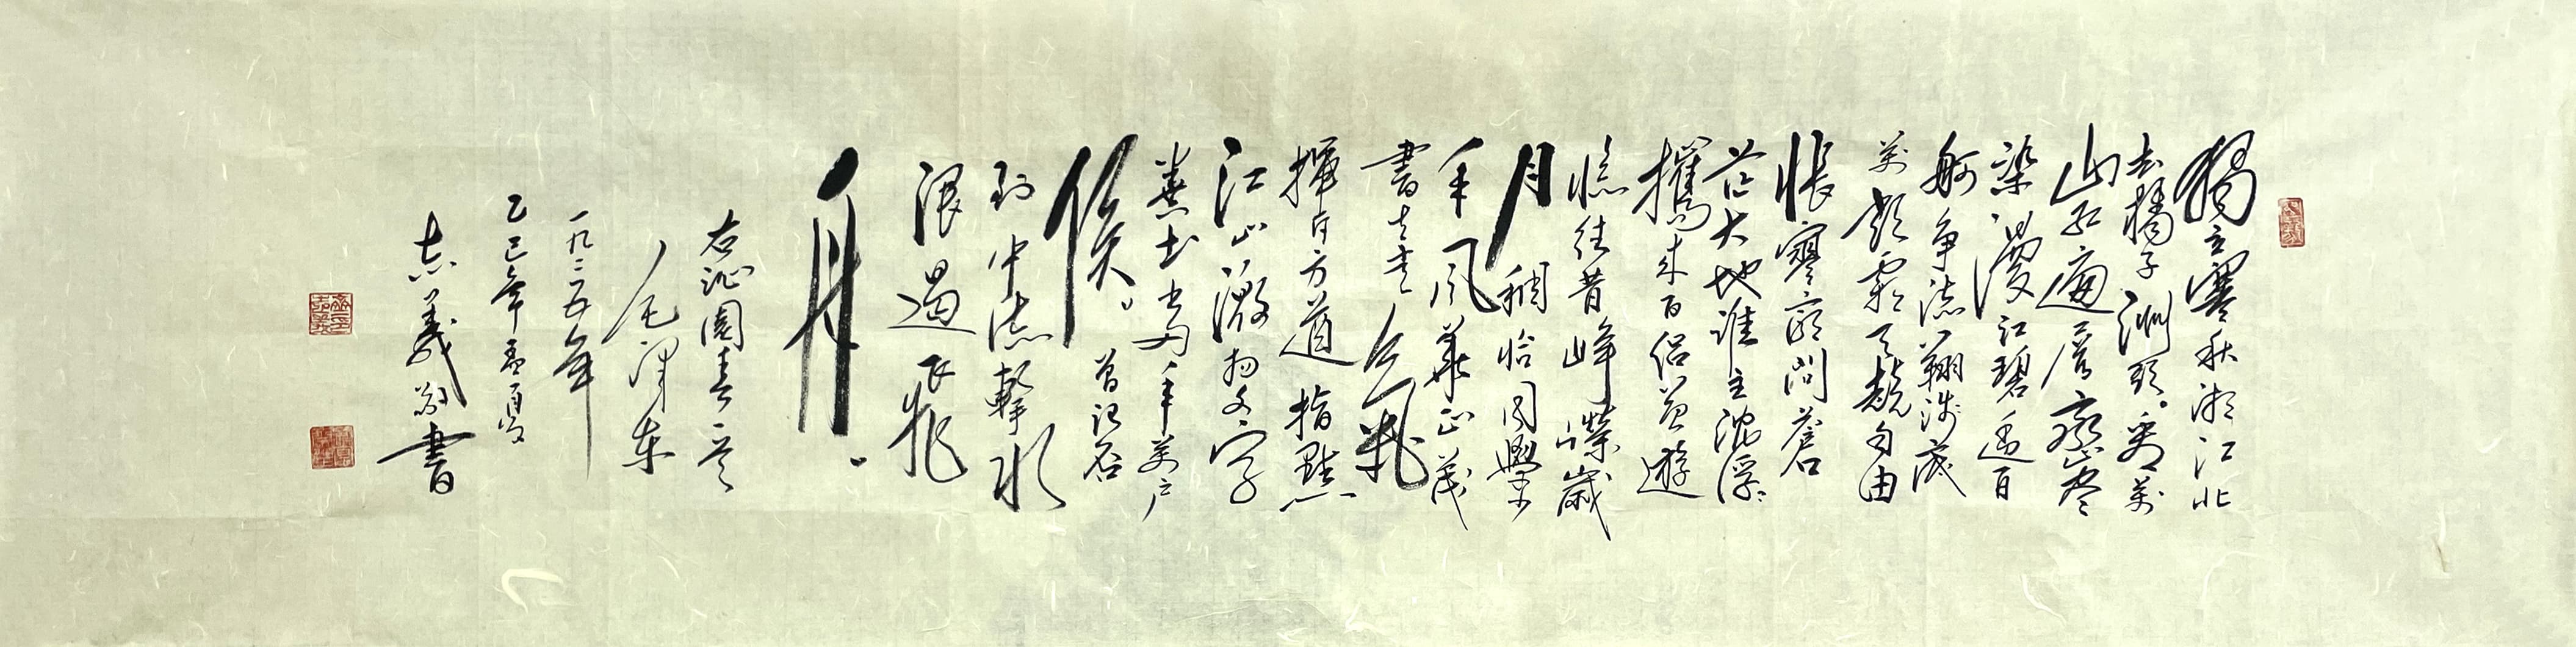 獨立寒秋湘江北
去橘子洲頭看萬
山紅遍層林盡
染漫江碧透百
舸爭流鷹翔淺底
萬類霜天競自由
悵寥廓問蒼
茫大地誰主沈浮
攜來百侶曾遊
憶往昔崢嶸歲
月稠恰同學
年風華正茂
書生意氣
揮斥方遒指點
江山激揚文字
糞土當年萬户
侯曾記否
到中流擊水
浪遏飛
舟
右沁園春長
沙毛澤东
一九二五年
乙巳年孟夏
志義敬書